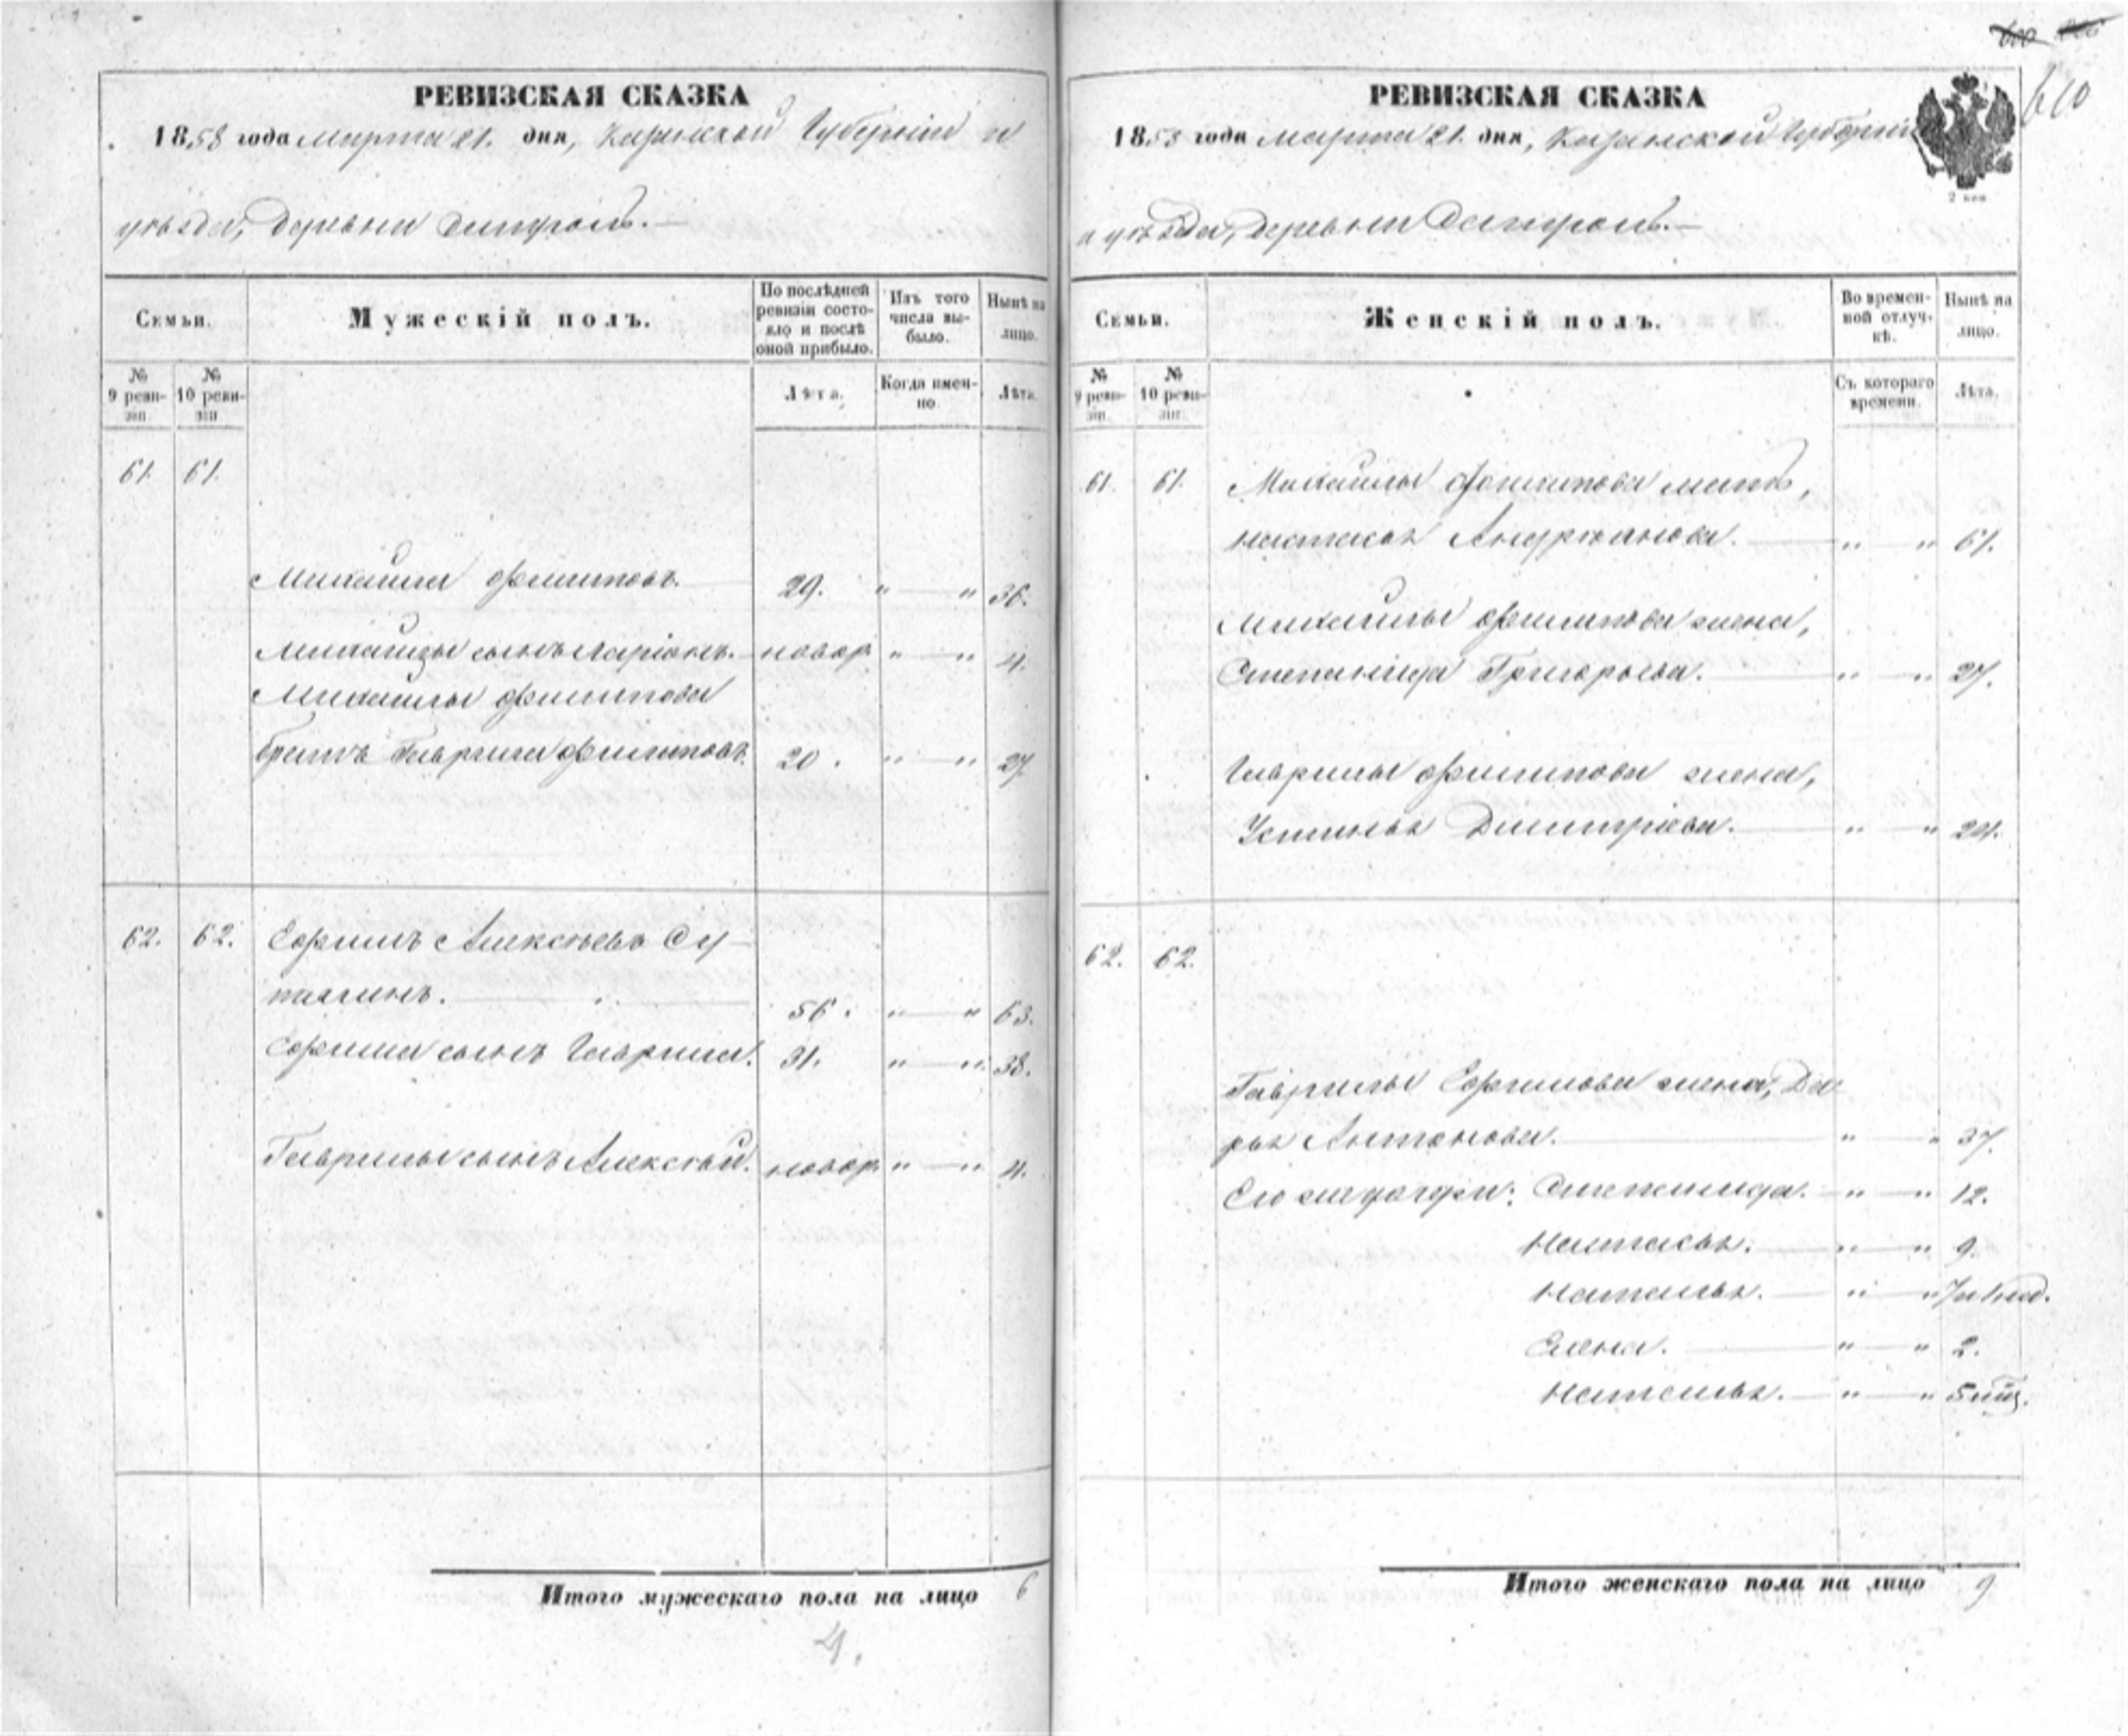 РЕВИЗСКАЯ СКАЗКА
1858 года Марта 21. дня, Казанской Губернiи и
уѣзда, Деревни
Семьи.
Мужескiй полъ.
По послѣдней ревизiи состояло и послѣ оной прибыло.
Изъ того числа выбыло.
Нынѣ на лицо.
№ 9 ревизiи
№ 10 ревизiи
Лѣта.
Когда именно.
Лѣта.
61. 61.
Михаила Филиповъ. 29. " — " 36.
Михаилы сынъ Ларiонъ. новор. " — " 4.
Михаилы Филипова
братъ Гаврила Филиповъ. 20. " — " 27.
62. 62. Ефимъ Алексѣевъ Су-
тягинъ. 56. " — " 63.
Ефима сынъ Гаврила. 31. " — " 38.
Гаврилы сынъ Алексѣй. новор. " — " 4.
Итого мужескаго пола на лицо 6
4.
610
РЕВИЗСКАЯ СКАЗКА
1858 года Марта 21. дня, Казанской Губернiи
и уѣзда, Деревни
2 коп
Семьи.
Женскiй полъ.
Во временной отлучкѣ.
Нынѣ на лицо.
№ 9 ревизiи.
№ 10 ревизiи.
Съ котораго времени.
Лѣта.
61. 61. Михаилы Филипова мать,
Настасья Андрiянова. " " 61.
Михаилы Филипова жена,
Степанида Григорьева. " " 27.
Гаврилы Филипова жена,
Устинья Димитрiева. " " 24.
62. 62.
Гаврилы Ефимова жена, Да-
рья Антонова. " " 37.
Его жъ дочери: Степанида. " — " 12.
Настасья. " — " 9.
Наталья. " — "
Елена. " — " 2.
Наталья. " — " 5 мѣс.
Итого женскаго пола на лицо 9